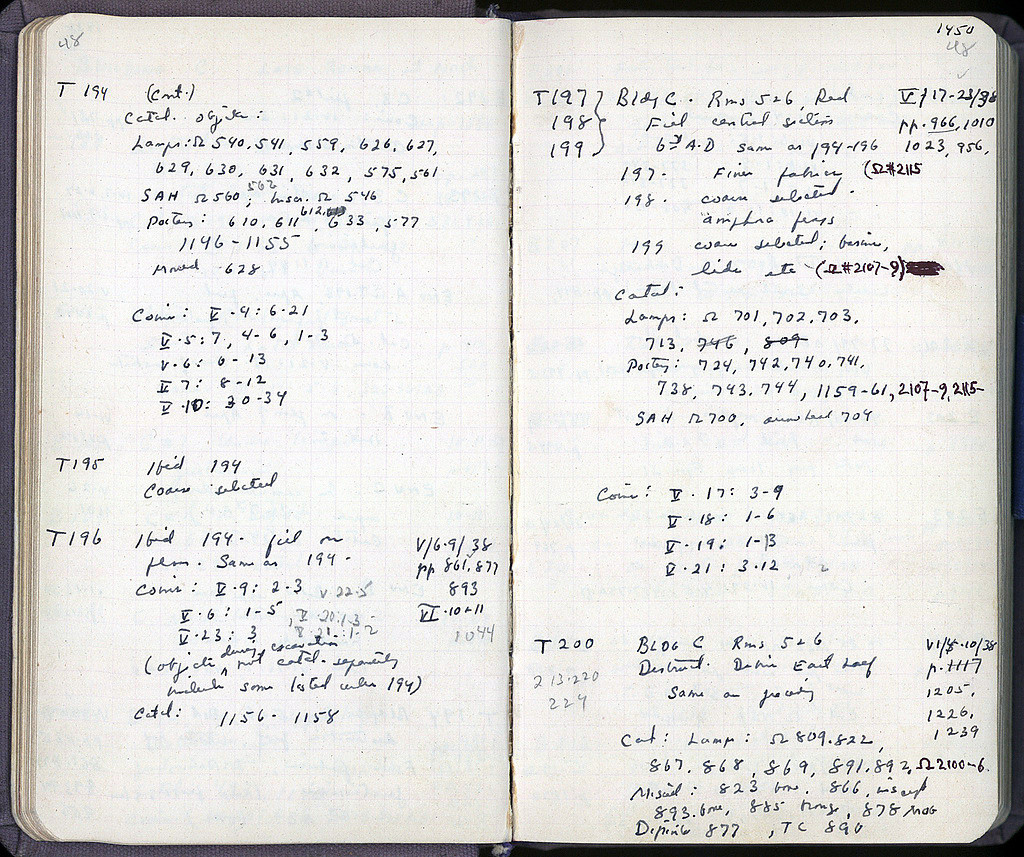 48
T 194 (Cont.)
Catal. objects:
Lamps: Ω 540, 541, 559, 626, 627,
629, 630, 631, 632, 575, 561
562
SAH Ω 560; Inscr. Ω 546
Pottery: 610, 611, 612, 633, 577
1146-1155
628
Coins: V-4: 6-21
V-5: 7, 4-6, 1-3
V-6: 6-13
V 7: 8-12
V-10: 30-34
T195 Ibid 194
Coarse selected
T196 Ibid 194. fill on V/6-9/38
floor. Same as 194. pp 861, 877
893
Coins: V-9: 2-3 V 22-5
V-6: 1-5, V-20:1-3 VI-10-11
V-23: 3 V-21-1-2 1044
during excavation
(objects not catal. separately
include some listed under 194)
Catal: 1156-1158
1450
48
T197 Bldg C. Rms 5+6, Red V/17-23/38
198 Fill central section pp. 966, 1010
199 6th A.D same as 194-196 1023, 956,
197. Finer fabrics (Ω#2115
198. coarse selected
amphra frags
199 coarse selected; basins,
lids etc (Ω#2107-9)
Catal:
Lamps: Ω 701, 702, 703,
713, 746, 809
Pottery: 724, 742, 740, 741,
738, 743, 744, 1159-61, 2107-9, 2115-
SAH Ω 700, arrowhead 704
Coins: V-17: 3-9
V-18: 1-6
V-19: 1-13
V-21: 3-12
T200 BLDG C Rms 5+6 VI/8-10/38
213-220 Destruct. Debris East half p. 1117
224 Same as preceding 1205,
1226,
1239
Cat: Lamps: Ω 809, 822,
867, 868, 869, 891, 892, Ω 2100-6.
Miscel: 823 bone, 866, inscript
893 bone, 885 bronze, 878
877, TC 890